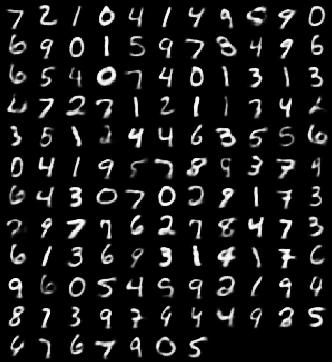 7 2 1 0 4 1 4 9 5 9 0
6 9 0 1 5 9 7 3 4 9 6
6 5 4 0 7 4 0 1 3 1 3
4 7 2 7 1 2 1 1 7 4 2
3 5 1 2 4 4 6 3 5 5 6
0 4 1 9 5 7 8 9 3 7 4
6 4 3 0 7 0 2 9 1 7 3
2 9 7 7 6 2 7 8 4 7 3
6 1 3 6 9 3 1 4 1 7 6
9 6 0 5 4 9 9 2 1 9 4
8 7 3 9 7 4 4 4 9 2 5
4 7 6 7 9 0 5